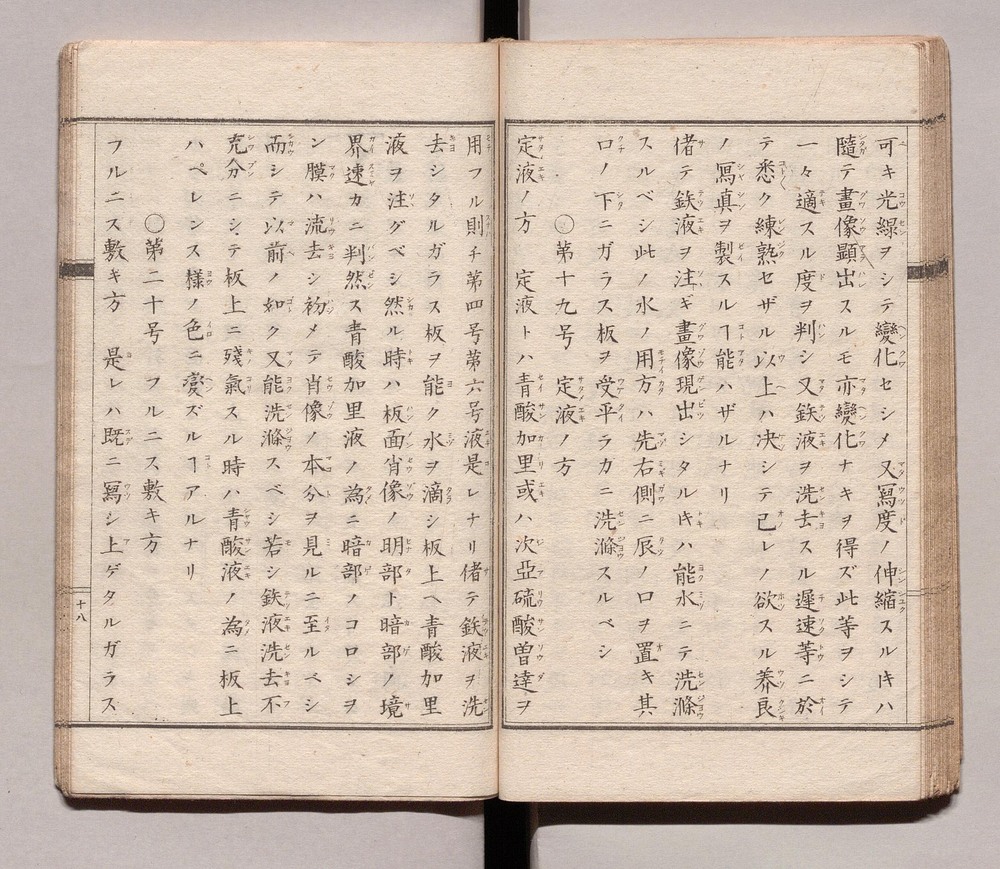 可キ光線ヲシテ變化セシメ又寫度ノ伸縮スルㇳキハ
隨テ畫像顕出スルモ亦變化ナキヲ得ズ此等ヲシテ
一々適スル度ヲ判シ又鉄液ヲ洗去スル遲速等ニ於
テ悉ク練熟セザル以上ハ决シテ己レノ欲スル養良
ノ寫真ヲ製スルヿ能ハザルナリ
偖テ鉄液ヲ注ギ畫像現出シタル𪜈ハ能水ニテ洗滌
スルベシ此ノ水ノ用方ハ先右側ニ辰ノ口ヲ置キ其
口ノ下ニガラス板ヲ受平ラカニ洗滌スルベシ
○第十九号 定液ノ方
定液ノ方 定液トハ青酸加里或ハ次亞硫酸曽達ヲ
用フル則チ第四号第六号液是レナリ偖テ鉄液ヲ洗
去シタルガラス板ヲ能ク水ヲ滴シ板上ヘ青酸加里
液ヲ注グベシ然ル時ハ板面肖像ノ明部ト暗部ノ境
界速カニ判然ス青酸加里液ノ為ニ暗部ノコロシヲ
ン膜ハ流去シ初メテ肖像ノ本分ヲ見ルニ至ルベシ
而シテ以前ノ如ク又能洗滌スベシ若シ鉄液洗去不
充分ニシテ板上ニ殘氣スル時ハ青酸液ノ為ニ板上
ハペレンス様ノ色ニ變ズルヿアルナリ
○第二十号 フルニス敷キ方
フルニス敷キ方 是レハ既ニ寫シ上ゲタルガラス
十八